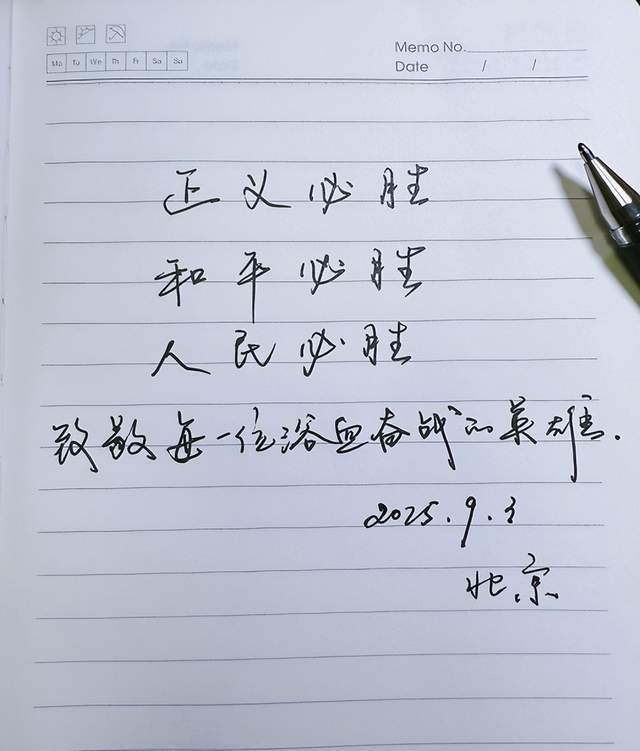 Memo No.
Mo Tu We Th Fr Sa Su
Date / /
正义必胜
和平必胜
人民必胜
致敬每一位浴血奋战的英雄.
2025.9.3
北京